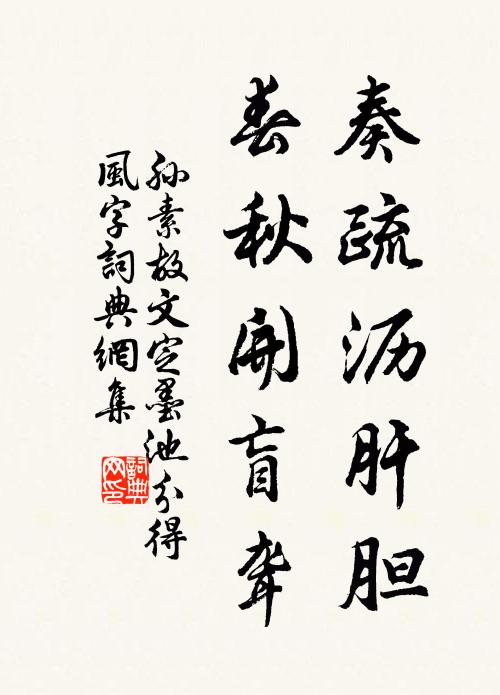 奏疏沥肝胆
春秋開盲聋
孙素故文定墨池分得
風字詞典網集
詞典
网印